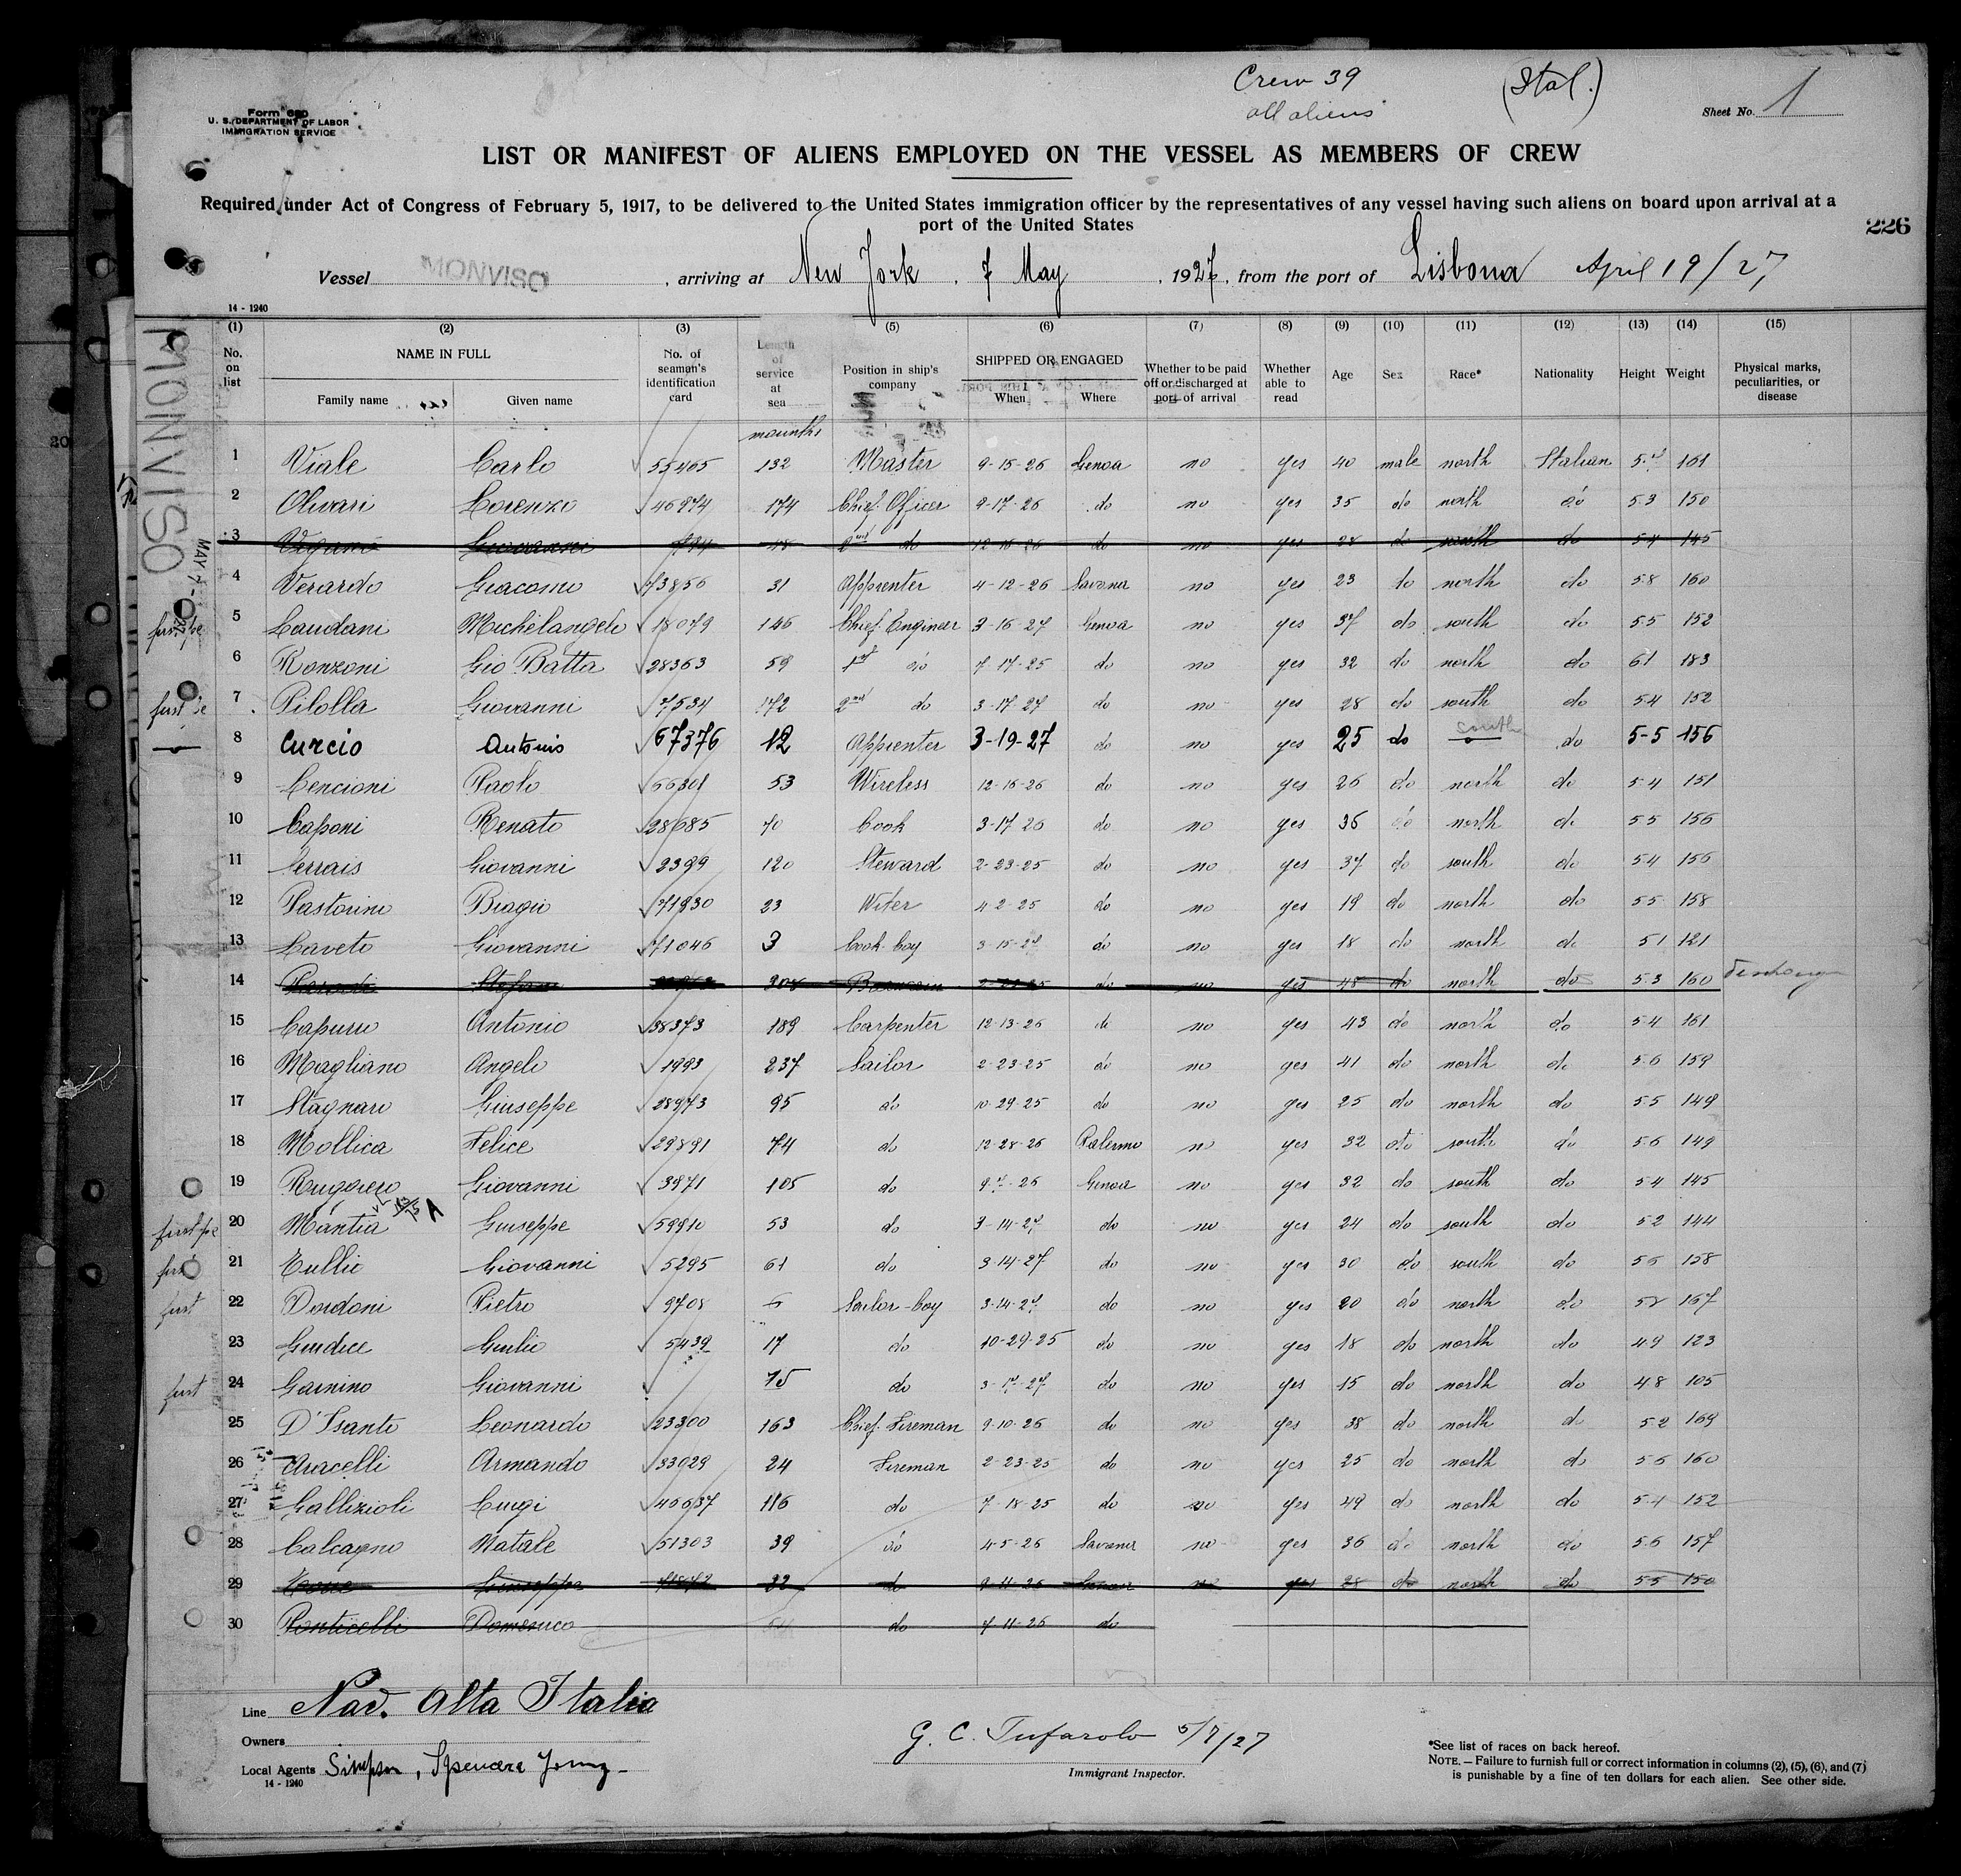 Crew 39
all aliens
(Ital.)
Sheet No. 1
Form 680
U. S. DEPARTMENT OF LABOR
IMMIGRATION SERVICE
LIST OR MANIFEST OF ALIENS EMPLOYED ON THE VESSEL AS MEMBERS OF CREW
Required under Act of Congress of February 5, 1917, to be delivered to the United States immigration officer by the representatives of any vessel having such aliens on board upon arrival at a
port of the United States
226
Vessel MONVISO, arriving at New York, 7 May, 1927, from the port of Lisbona April 19/27
14 - 1240
MONVISO
(1) (2) (3) (5) (6) (7) (8) (9) (10) (11) (12) (13) (14) (15)
No. on list
NAME IN FULL
Family name Given name
No. of seaman's identification card
Length of service at sea
Position in ship's company
SHIPPED OR ENGAGED
When Where
Whether to be paid off or discharged at port of arrival
Whether able to read
Age Sex Race* Nationality Height Weight
Physical marks, peculiarities, or disease
1 Viale Carlo 55465 132 Master 9-15-26 Genoa no yes 40 male north Italian 161
2 Olivari Lorenzo 46974 174 Chief Officer 9-17-26 do no yes 35 do north do 53 150
3 Giovanni 48 2nd do 12-16-26 do no yes 28 do do 54 145
4 Verardo Giacomo 73856 31 Apprenter 4-12-26 Savona no yes 23 do north do 58 160
5 Laudani Michelangelo 18079 146 Chief Engineer 3-16-27 Genoa no yes 37 do south do 55 152
6 Ronzoni Gio Batta 28363 59 1st do 7-17-25 do no yes 32 do north do 61 183
first 7 Pilolla Giovanni 7534 172 2nd do 3-17-27 do no yes 28 do south do 54 152
8 Curcio Antonio 67376 12 Apprenter 3-19-27 do no yes 25 do south do 5-5 156
9 Cencioni Paolo 66301 53 Wireless 12-16-26 do no yes 26 do north do 54 151
10 Caponi Renato 28685 70 Cook 3-17-26 do no yes 36 do north do 55 156
11 Serrais Giovanni 2399 120 Steward 2-23-25 do no yes 37 do south do 54 156
12 Pastorino Biagio 71930 23 Witer 4-2-25 do no yes 19 do north do 55 158
13 Caveto Giovanni 71046 3 Cook boy 3-15-27 do no yes 18 do north do 51 121
14 Stefano do no yes 48 do north do 53 160
15 Capurro Antonio 38373 189 Carpenter 12-13-26 do no yes 43 do north do 54 161
16 Magliano Angelo 1993 237 Sailor 2-23-25 do no yes 41 do north do 56 159
17 Stagnaro Giuseppe 28973 95 do 10-29-25 do no yes 25 do north do 55 149
18 Mollica Felice 29891 74 do 12-28-26 Palermo no yes 32 do south do 56 149
19 Ruggiero Giovanni 3971 105 do 9-7-26 Genoa no yes 32 do south do 54 145
20 Mantia Giuseppe 59910 53 do 3-14-27 do no yes 24 do south do 52 144
first 21 Tullio Giovanni 5295 61 do 3-14-27 do no yes 30 do south do 56 158
first 22 Dordoni Pietro 9708 6 Sailor-boy 3-14-27 do no yes 20 do north do 58 167
23 Giudice Giulio 5439 17 do 10-29-25 do no yes 18 do north do 49 123
first 24 Garnino Giovanni 15 do 3-17-27 do no yes 15 do north do 48 105
25 D'Isanto Leonardo 23300 163 Chief Fireman 9-10-26 do no yes 38 do north do 52 169
26 Aracelli Armando 33929 24 Fireman 2-23-25 do no yes 25 do north do 56 160
27 Gallizioli Luigi 40637 116 do 7-18-25 do no yes 49 do north do 54 152
28 Calcagno Natale 51303 39 do 4-5-26 Savona no yes 36 do north do 56 157
29 Giuseppe 32 do 9-11-26 Genoa no yes 28 do north do 55 150
30 Ponticelli Domenico do 7-11-26 do
Line Nav. Alta Italia
Owners
Local Agents Simpson, Spence & Young
14 - 1240
G. C. Tufarolo 5/7/27
Immigrant Inspector.
*See list of races on back hereof.
NOTE. — Failure to furnish full or correct information in columns (2), (5), (6), and (7)
is punishable by a fine of ten dollars for each alien. See other side.